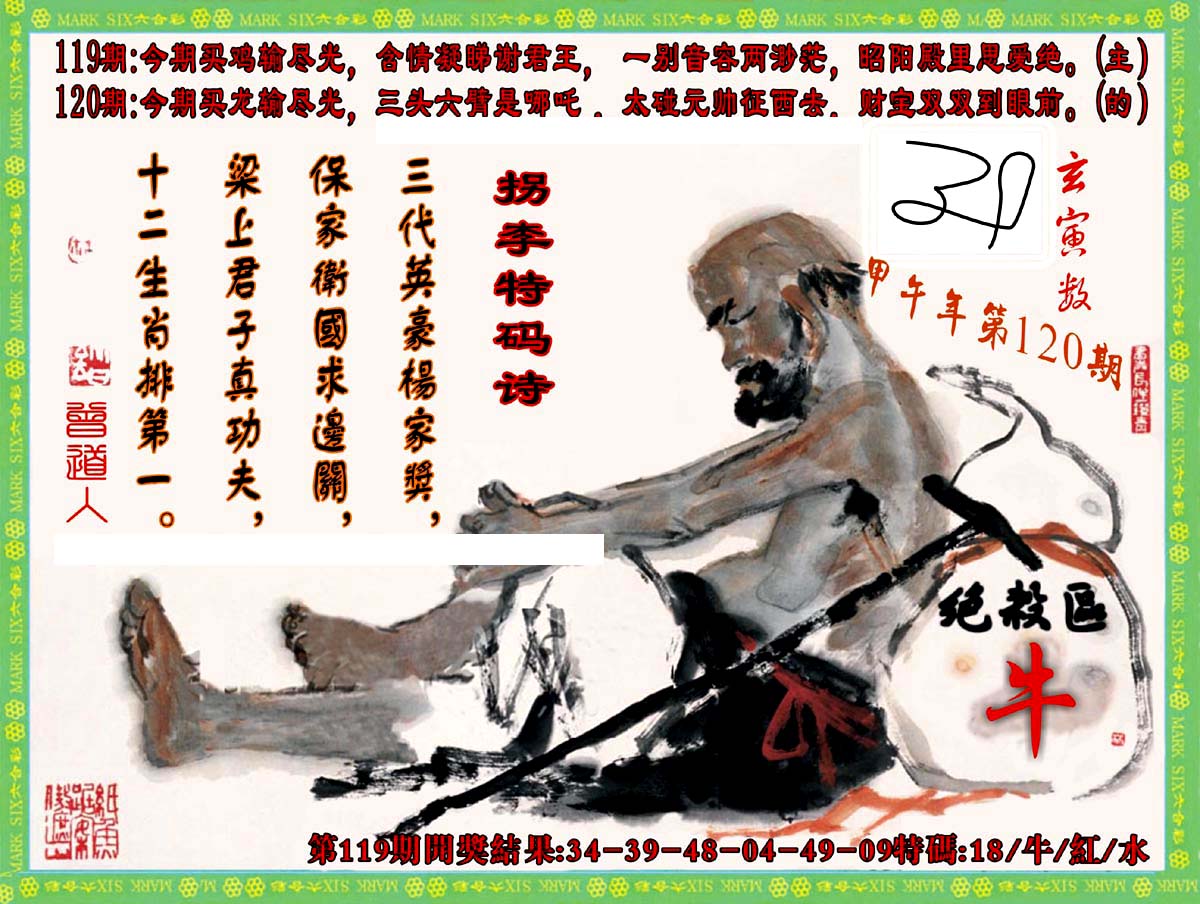 MARK SIX六合彩
119期:今期买鸡输尽光，含情凝睇谢君王， 一别音容两渺茫，昭阳殿里恩爱绝。(主)
120期:今期买龙输尽光，三头六臂是哪吒．太碰元帅征西去．财宝双双到眼前。(的)
玄寅数
甲午年第120期
拐李特码诗
三代英豪楊家獎，
保家衛國求邊關，
梁上君子真功夫，
十二生肖排第一。
曾道人
绝殺區
牛
第119期開獎結果:34-39-48-04-49-09特碼:18/牛/紅/水